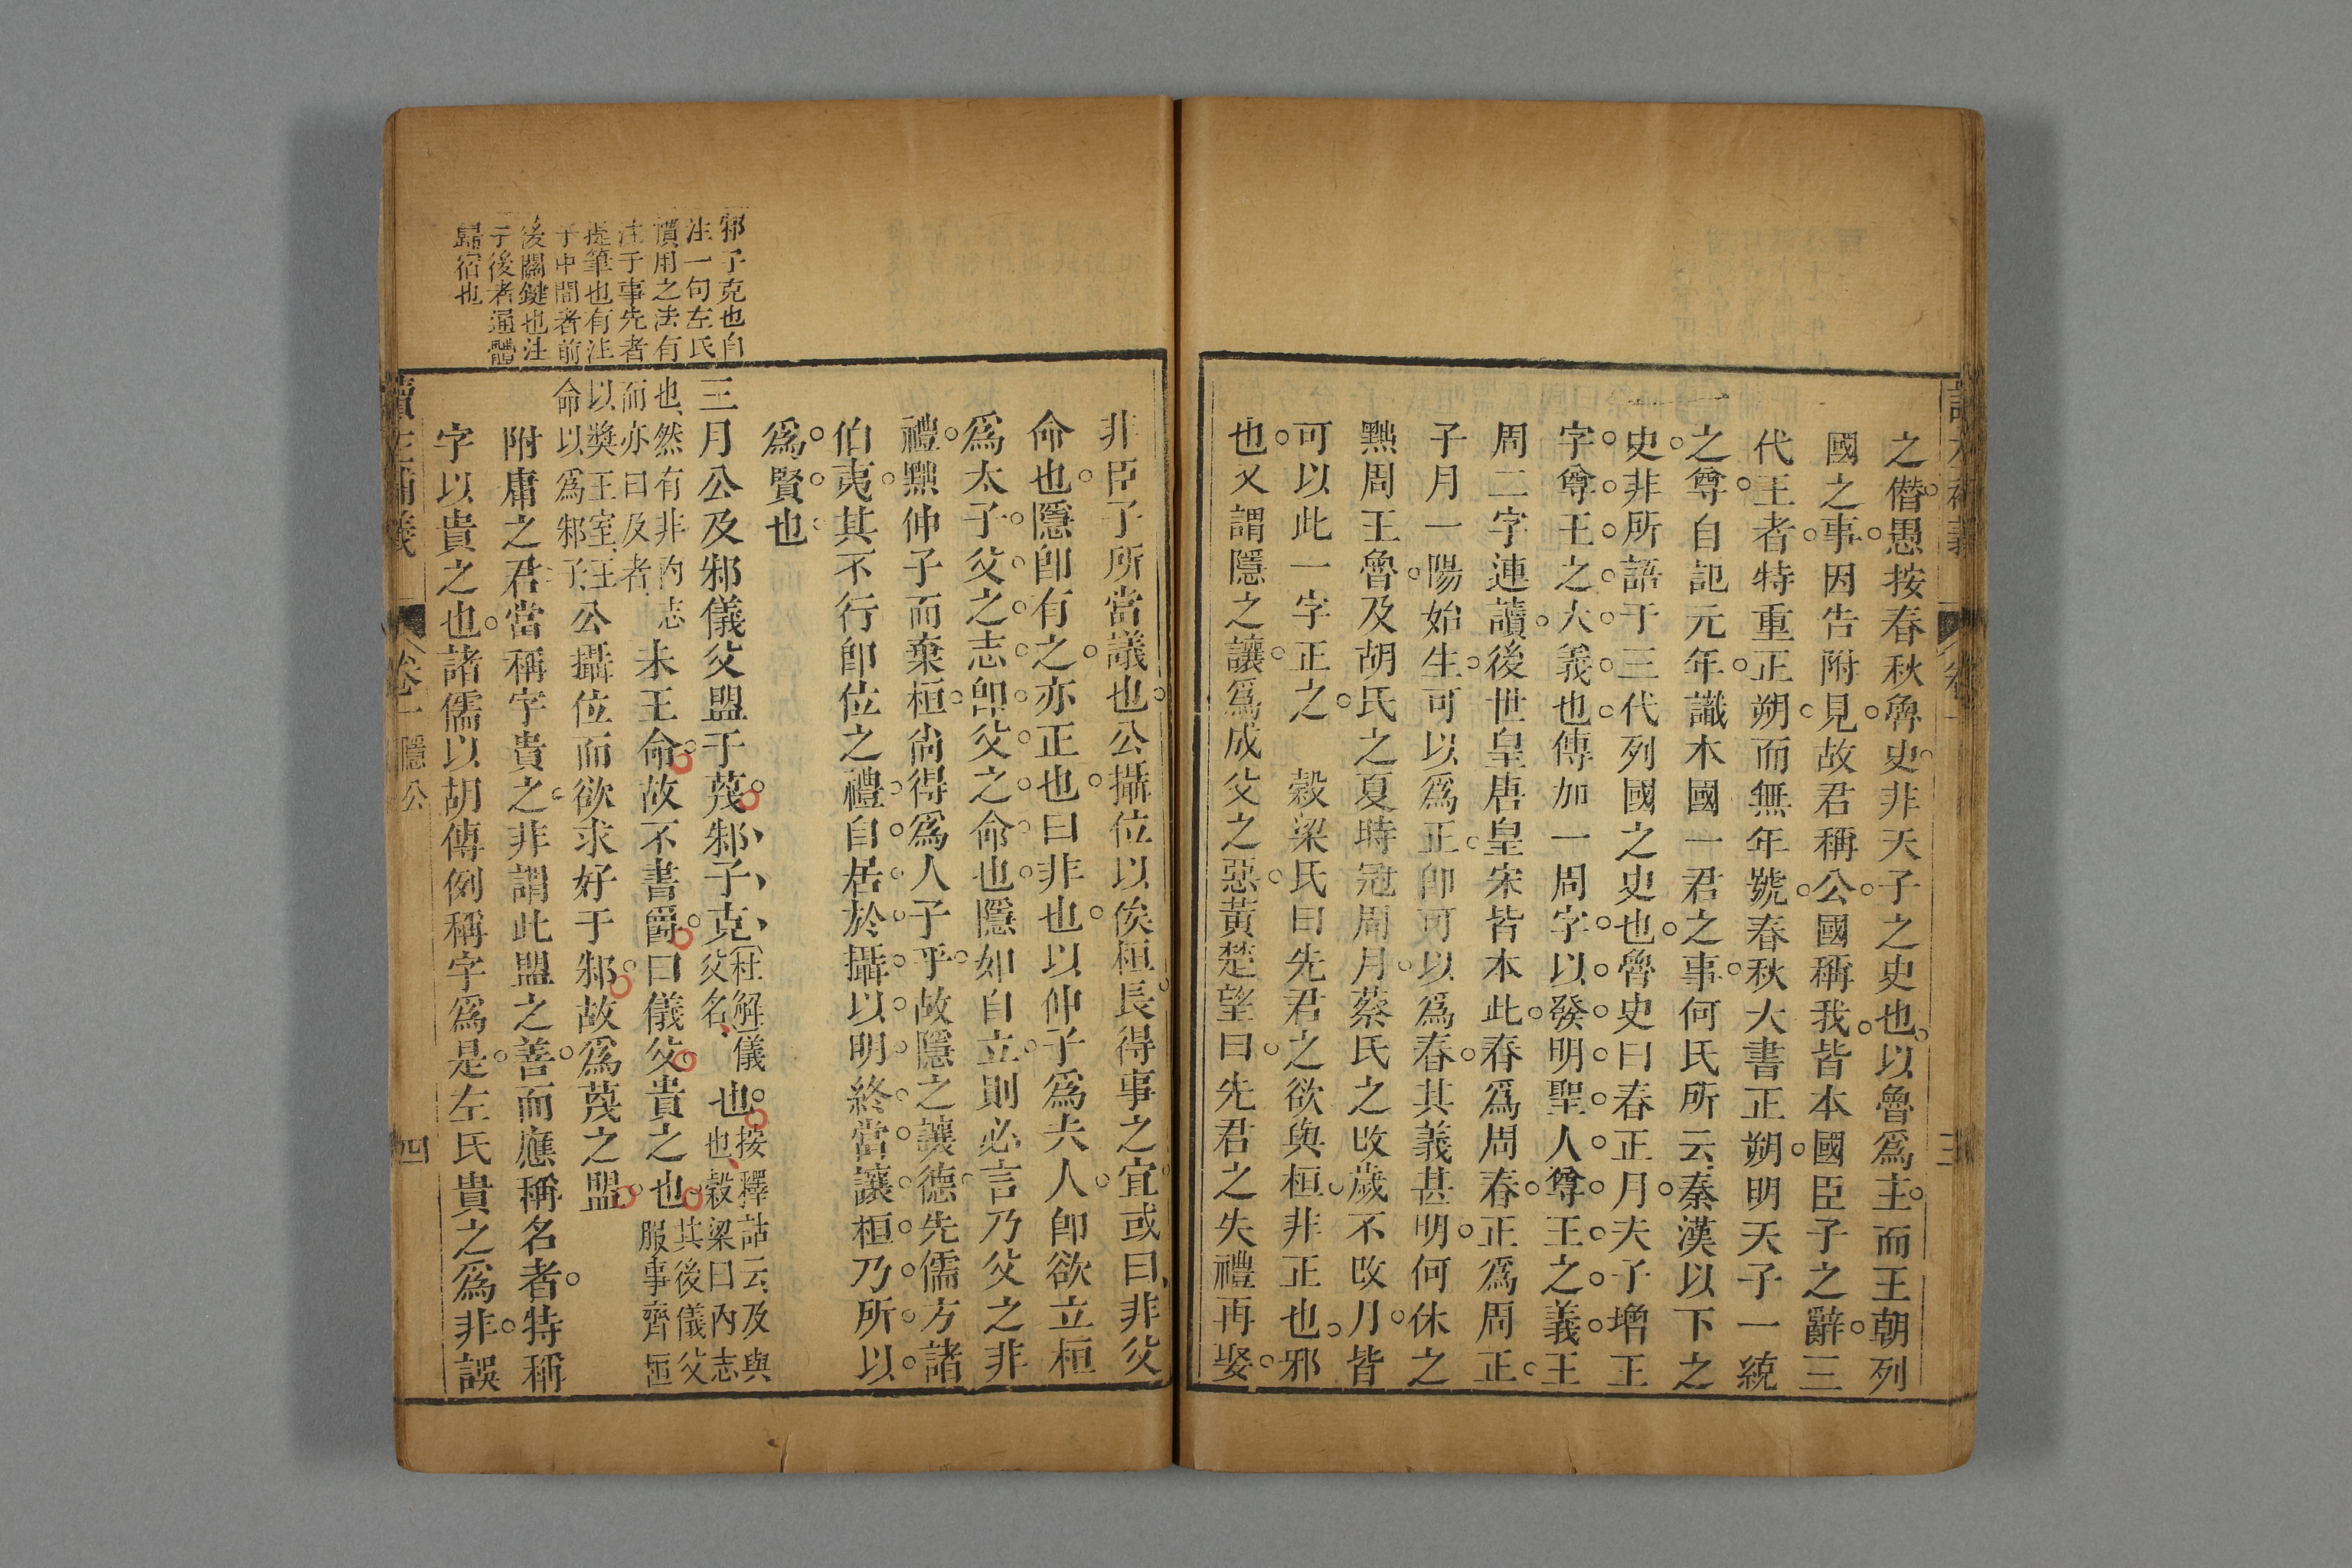 之僭愚按春秋魯史非天子之史也以魯爲主而王朝列
國之事因告附見故君稱公國稱我皆本國臣子之辭三
代王者特重正朔而無年號春秋大書正朔明天子一統
之尊自記元年識本國一君之事何氏所云秦漢以下之
史非所語于三代列國之史也魯史曰春正月夫子增王
字尊王之大義也傳加一周字以發明聖人尊王之義王
周二字連讀後世皇唐皇宋皆本此春爲周春正爲周正
子月一陽始生可以爲正卽可以爲春其義甚明何休之
黜周王魯及胡氏之夏時冠周月蔡氏之改歲不改月皆
可以此一字正之　穀梁氏曰先君之欲與桓非正也邪
也又謂隱之讓爲成父之惡黃楚望曰先君之失禮再娶
非臣子所當議也公攝位以俟桓長得事之宜或曰非父
命也隱卽有之亦正也曰非也以仲子爲夫人卽欲立桓
爲太子父之志卽父之命也隱如自立則必言乃父之非
禮黜仲子而棄桓尚得爲人子乎故隱之讓德先儒方諸
伯夷其不行卽位之禮自居於攝以明終當讓桓乃所以
爲賢也
邾子克也自
注一句左氏
慣用之法有
注于事先者
提筆也有注
于中間者前
後關鍵也注
于後者通體
歸宿也
三月公及邾儀父盟于蔑邾子克
杜解儀
父名
也
按釋詁云及與
也穀梁曰內志
也然有非內志
而亦曰及者
未王命故不書爵曰儀父貴之也
其後儀父
服事齊桓
以獎王室王
命以爲邾子
公攝位而欲求好于邾故爲蔑之盟
附庸之君當稱字貴之非謂此盟之善而應稱名者特稱
字以貴之也諸儒以胡傳例稱字爲是左氏貴之爲非誤
讀左補義
卷一　隱公
四
三